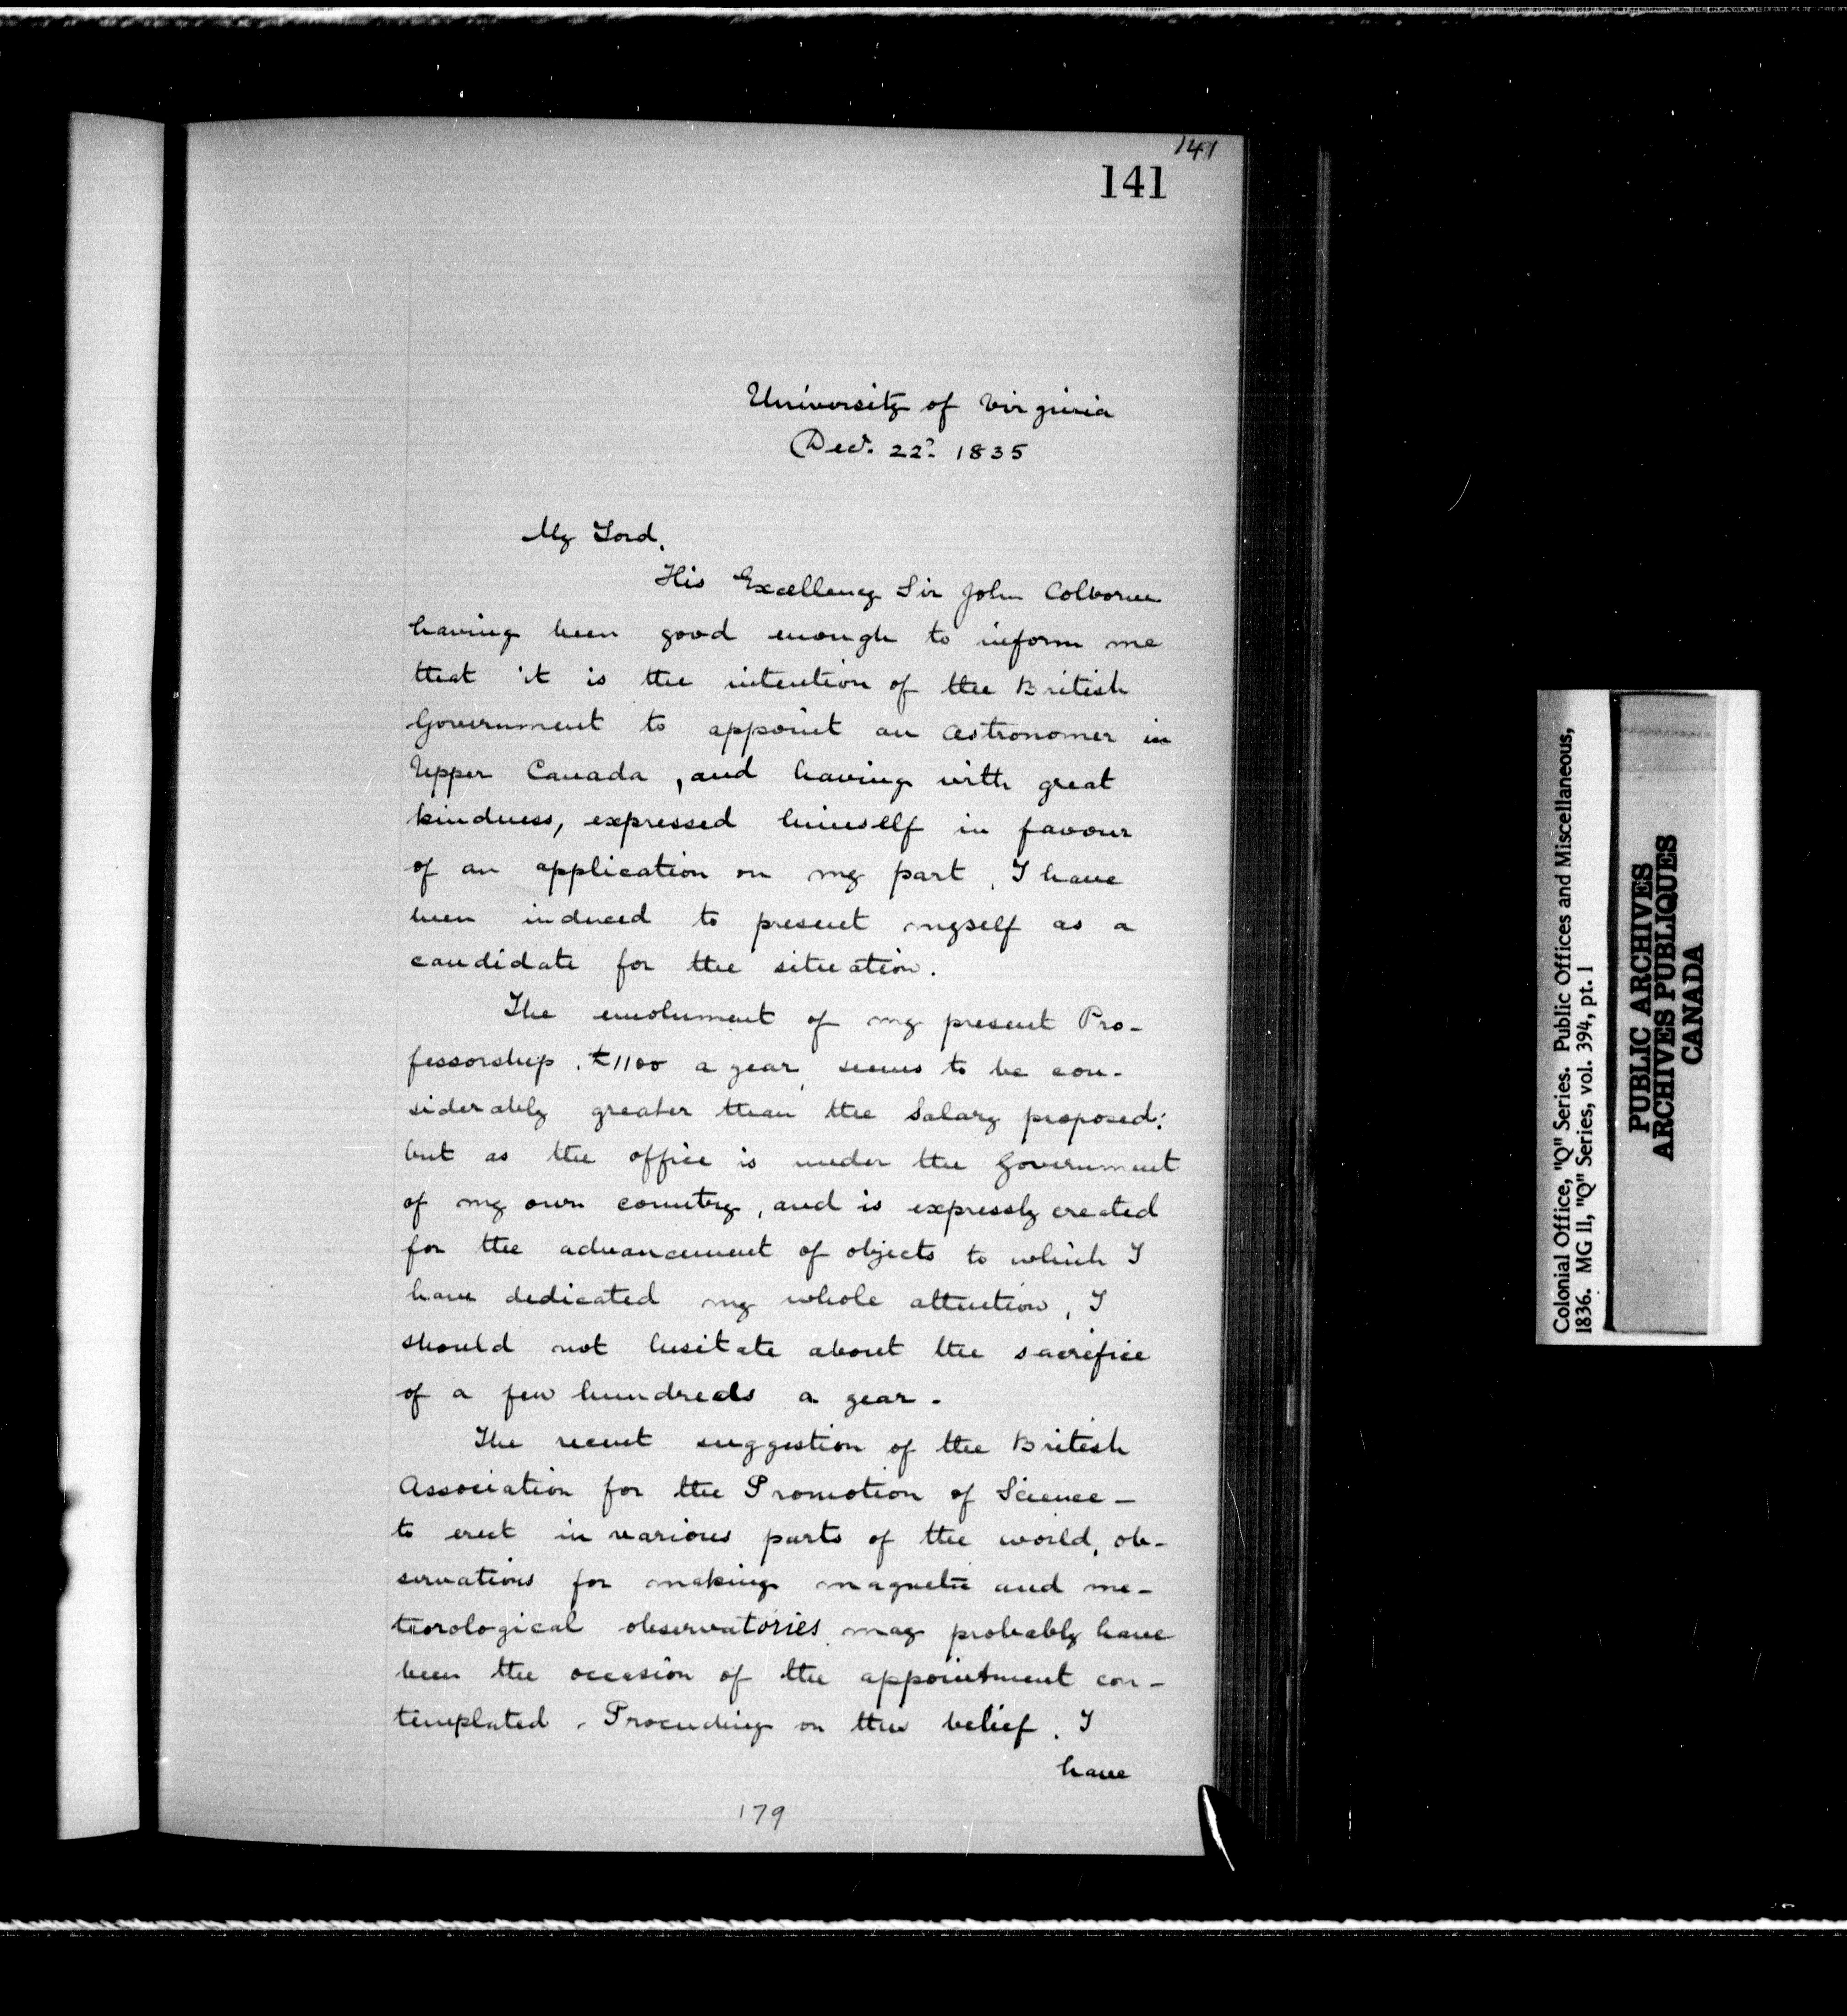 141
141
University of Virginia
Decr. 22d. 1835
My Lord,
His Excellency Sir John Colborne
having been good enough to inform me
that it is the intention of the British
Government to appoint an astronomer in
Upper Canada, and having with great
kindness, expressed himself in favour
of an application on my part, I have
been induced to present myself as a
candidate for the situation.
The emolument of my present Pro-
fessorship, £1100 a year, seems to be con-
siderably greater than the Salary proposed:
but as the office is under the Government
of my own country, and is expressly created
for the advancement of objects to which I
have dedicated my whole attention, I
should not hesitate about the sacrifice
of a few hundreds a year.
The recent suggestion of the British
Association for the Promotion of Science—
to erect in various parts of the world, ob-
servations for making magnetic and me-
teorological observatories may probably have
been the occasion of the appointment con-
templated. Proceeding on this belief, I
have
179
Colonial Office, "Q" Series. Public Offices and Miscellaneous,
1836. MG 11, "Q" Series, vol. 394, pt. 1
PUBLIC ARCHIVES
ARCHIVES PUBLIQUES
CANADA